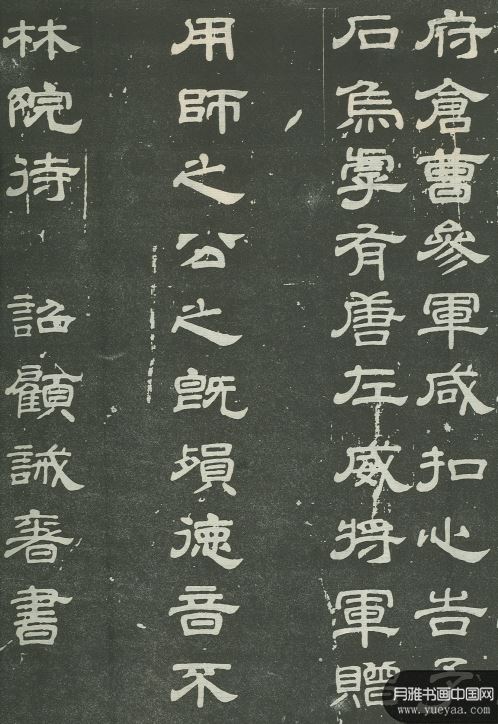 府倉曹參軍咸扣心告予
石烏虖有唐左威將軍贈
用師之公之既塤德音不
林院待 詔顧誡奢書
月雅书画中国网
www.yueyaa.com